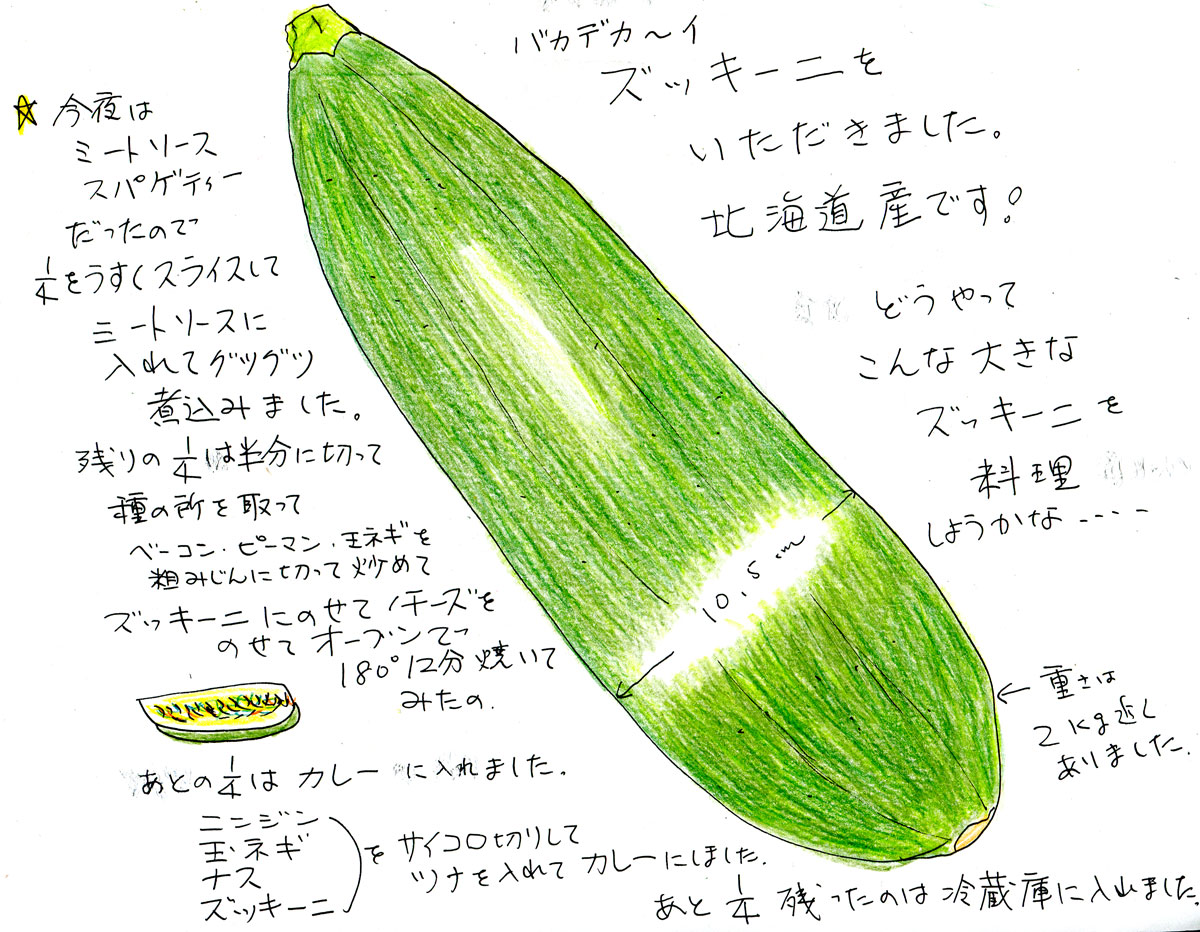 バカデカ〜イ
ズッキーニを
いただきました。
北海道産です!
どうやって
こんな大きな
ズッキーニを
料理
しようかな----
☆今夜は
ミートソース
スパゲティー
だったので
1/4をうすくスライスして
ミートソースに
入れてグツグツ
煮込みました。
残りの1/4は半分に切って
種の所を取って
ベーコン・ピーマン・玉ネギを
粗みじんに切って炒めて
ズッキーニにのせてチーズを
のせてオーブンで
180°12分焼いて
みたの.
10.5cm
←重さは
2kg近く
ありました.
あとの1/4はカレーに入れました.
ニンジン
玉ネギ
ナス
ズッキーニ
をサイコロ切りして
ツナを入れてカレーにしました.
あと1/4残ったのは冷蔵庫に入れました.